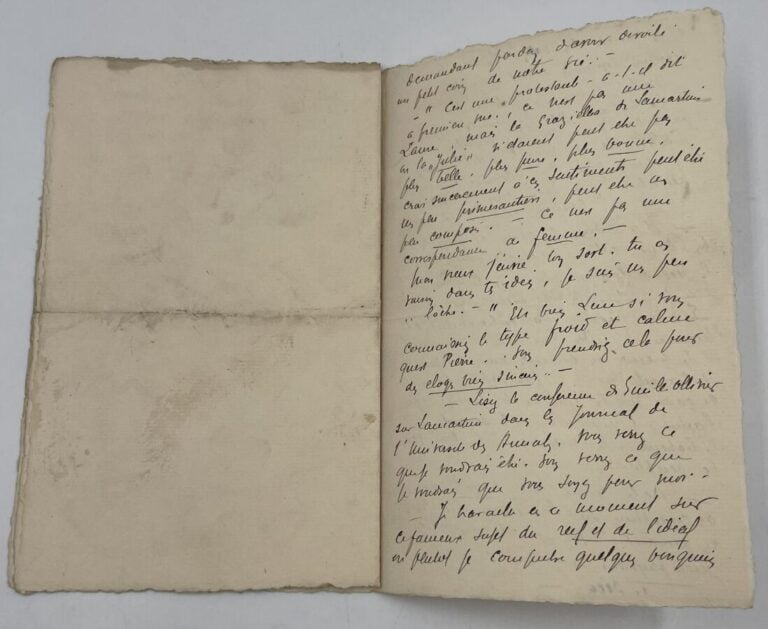 demandant pardon d'avoir dévoilé
un petit coin de notre vie. –
– " C'est une protestante – a-t-il dit
à première vue, ce n'est pas une
Laure, mais la Graziella de Lamartine
ou la "Julie" n'étaient peut être pas
plus belle, plus pure, plus bonne.
crois sincèrement à ces sentiments peut être
un peu primesautiers, peut être un
peu composé. – Ce n'est pas une
correspondance de femme. –
Mon vieux
dans tes idées, je suis un peu
" lâche. – " Eh bien, si vous
connaissiez le type froid et calme
qu'est Pierre. Vous prendriez cela pour
des éloges bien sincères. –
– Lisez la conférence de Emile Ollivier
sur Lamartine dans le Journal de
l'Université des Annales. Vous verrez ce
que je voudrais être. Vous verrez ce que
je voudrais que vous soyez pour moi –
– Je travaille en ce moment sur
ce fameux sujet du réel et de l'idéal
ou plutôt je compulse quelques bouquins